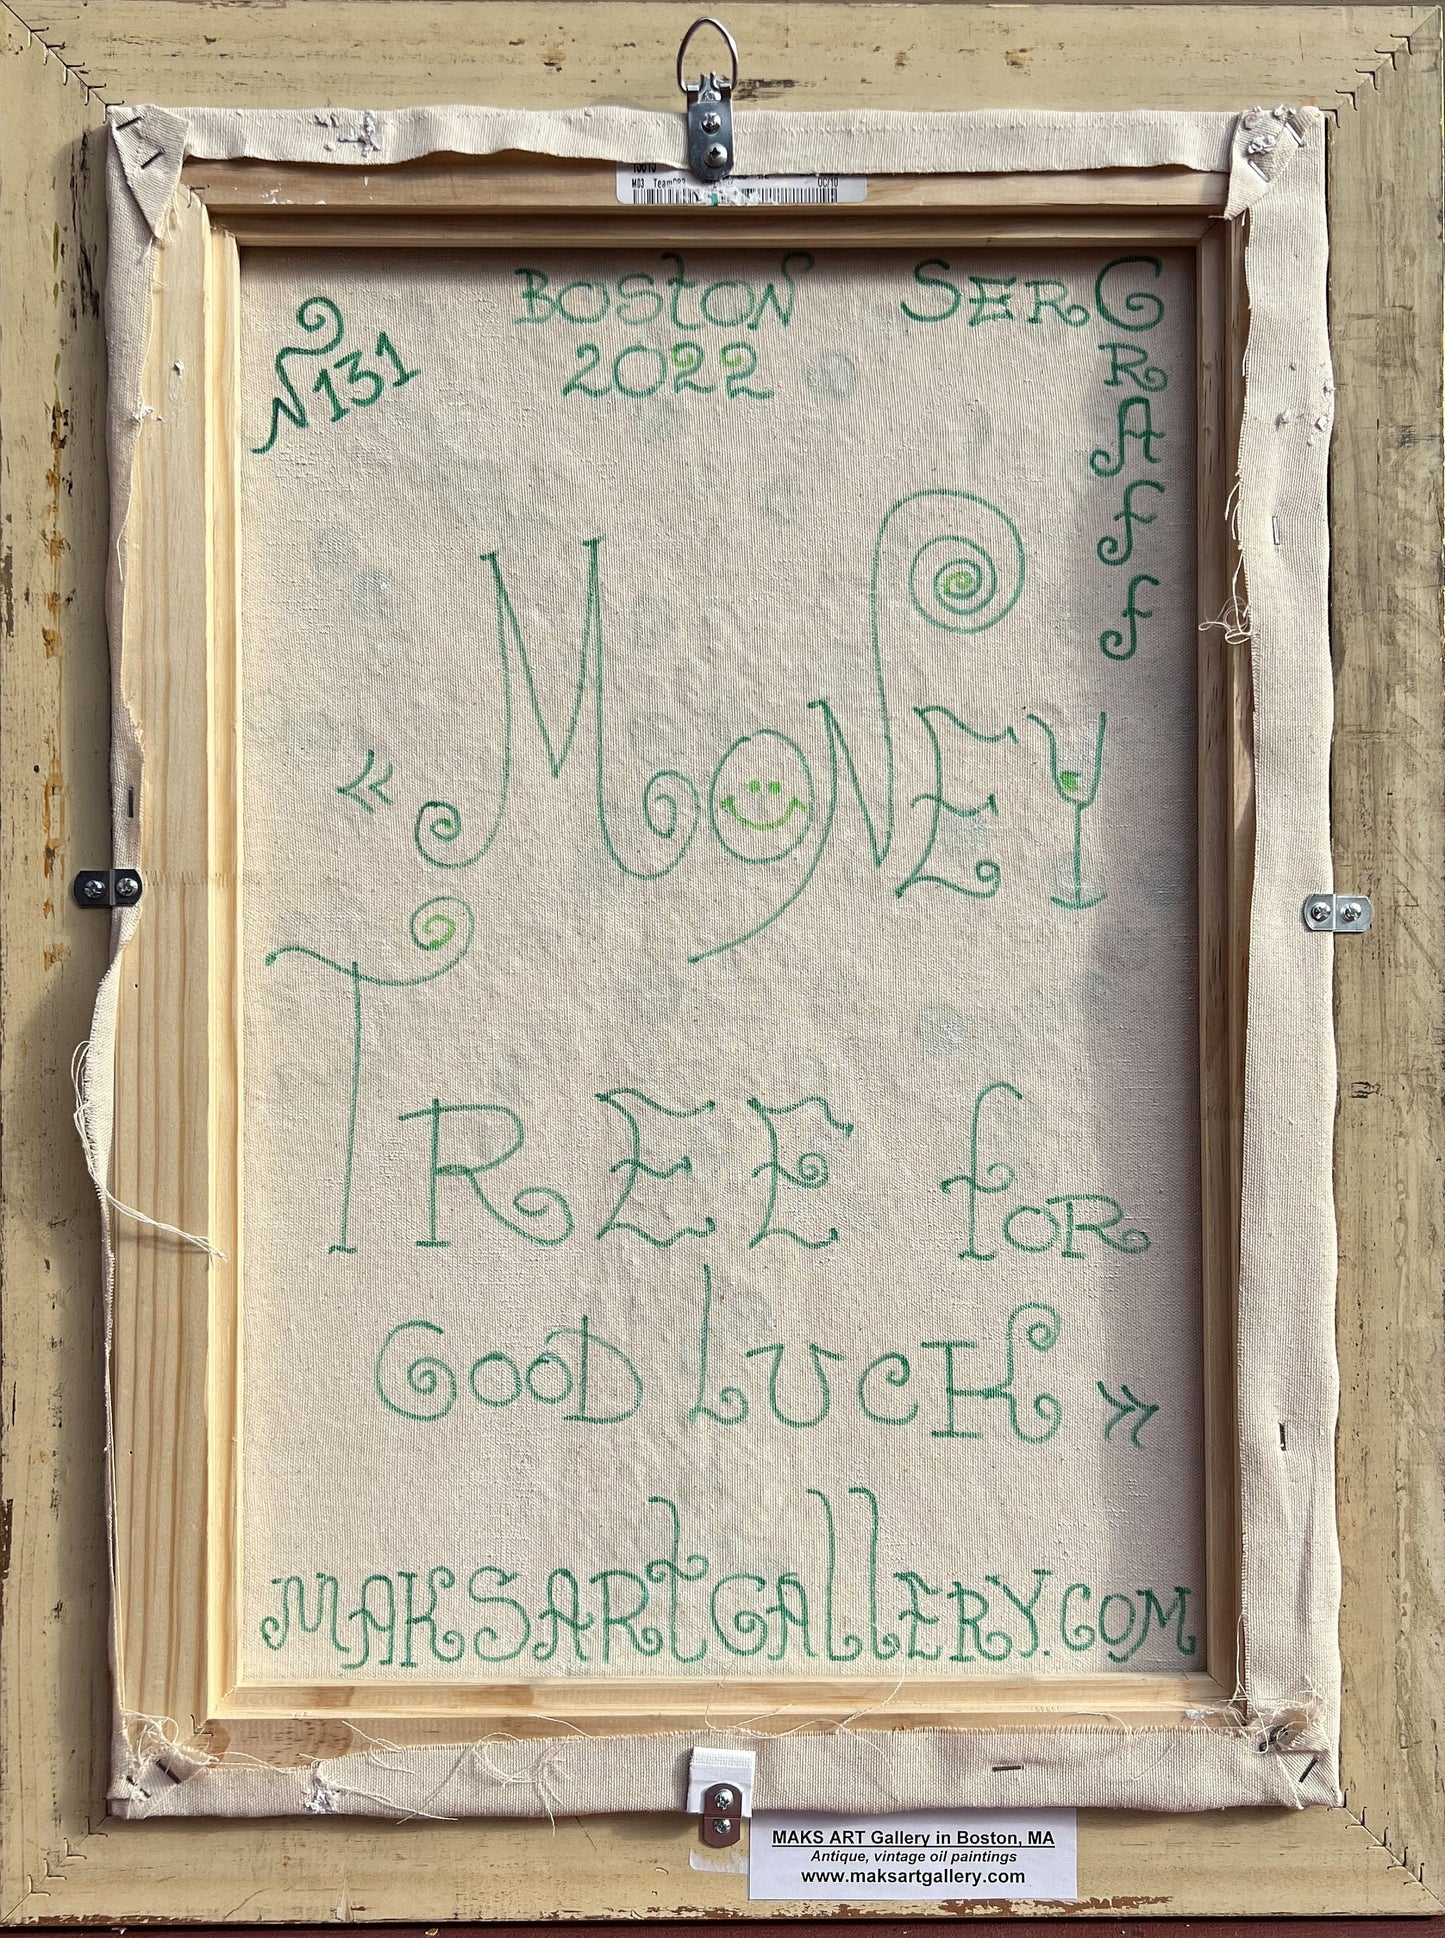 10010
M03 Team
OC/10
BOSTON
2022
N 131
SERG
GRAFF
« MONEY
TREE for
GOOD LUCK »
MAKSARTGALLERY.COM
MAKS ART Gallery in Boston, MA
Antique, vintage oil paintings
www.maksartgallery.com